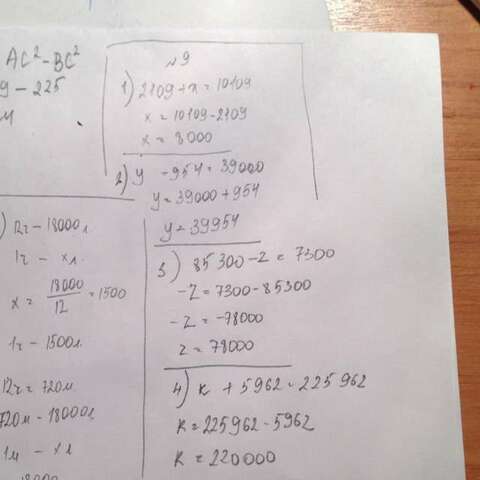 AC² - BC²
9 - 225
№9
1) 2109 + x = 10109
x = 10109 - 2109
x = 8000
2) y - 954 = 39000
y = 39000 + 954
y = 39954
3) 85300 - z = 7300
-z = 7300 - 85300
-z = -78000
z = 78000
4) k + 5962 = 225962
k = 225962 - 5962
k = 220000
) 12ч - 18000л
1ч - xл.
x = 18000/12 = 1500
1ч - 1500л.
12ч = 720м
720м - 18000л
1м - xл
18000